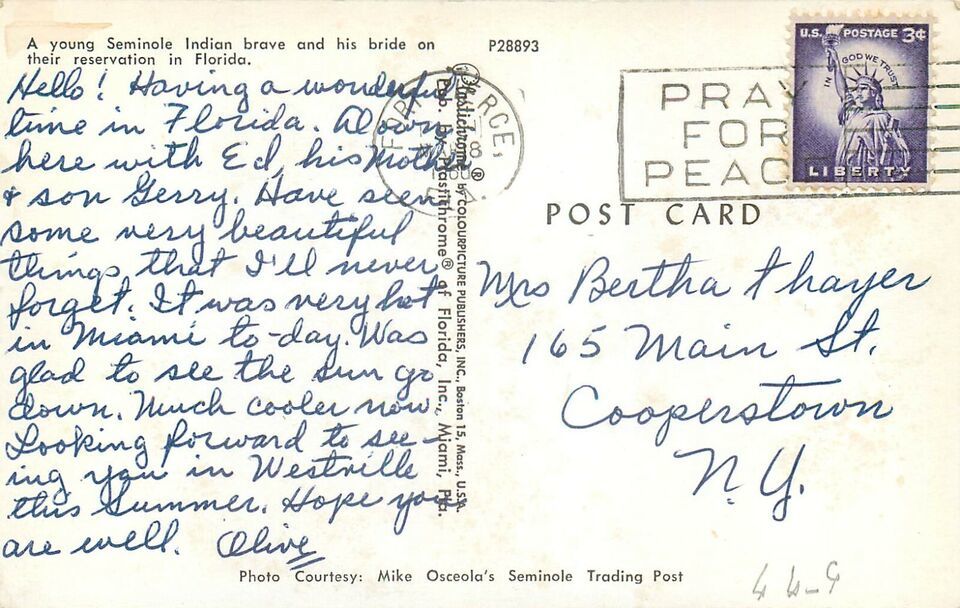 A young Seminole Indian brave and his bride on
their reservation in Florida.
P28893
Hello! Having a wonderful
time in Florida. Am down
here with Ed, his Mother
& son Gerry. Have seen
some very beautiful
things that I'll never
forget. It was very hot
in Miami to-day. Was
glad to see the sun go
down. Much cooler now.
Looking forward to see-
ing you in Westville
this Summer. Hope you
are well. Olive
Plastichrome® by COLOURPICTURE PUBLISHERS, INC., Boston 15, Mass., U.S.A.
Pub. by Plastichrome® of Florida, Inc., Miami, Fla.
FORT PIERCE,
PRAY
FOR
PEACE
U.S. POSTAGE 3¢
IN GOD WE TRUST
LIBERTY
POST CARD
Mrs Bertha Thayer
165 Main St.
Cooperstown
N.Y.
Photo Courtesy: Mike Osceola's Seminole Trading Post